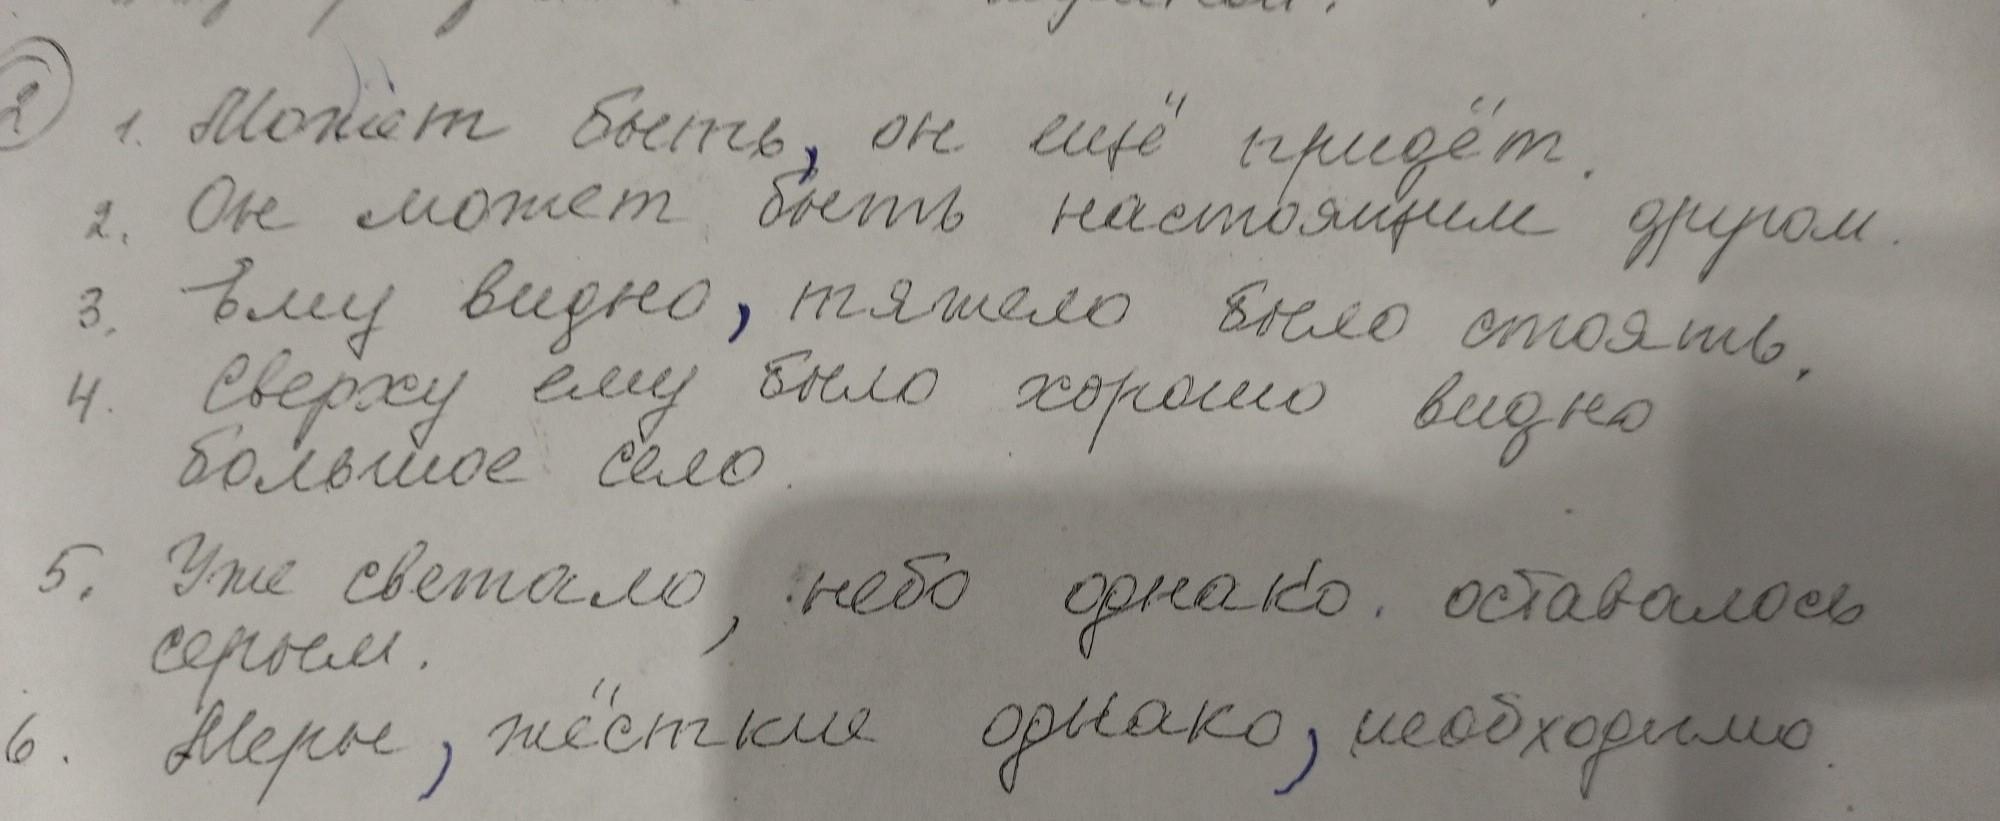 2
1. Может быть, он ещё придёт.
2. Он может быть настоящим другом.
3. Ему видно, тяжело было стоять.
4. Сверху ему было хорошо видно
большое село.
5. Уже светало, небо однако оставалось
серым.
6. Меры, жёсткие однако, необходимо.